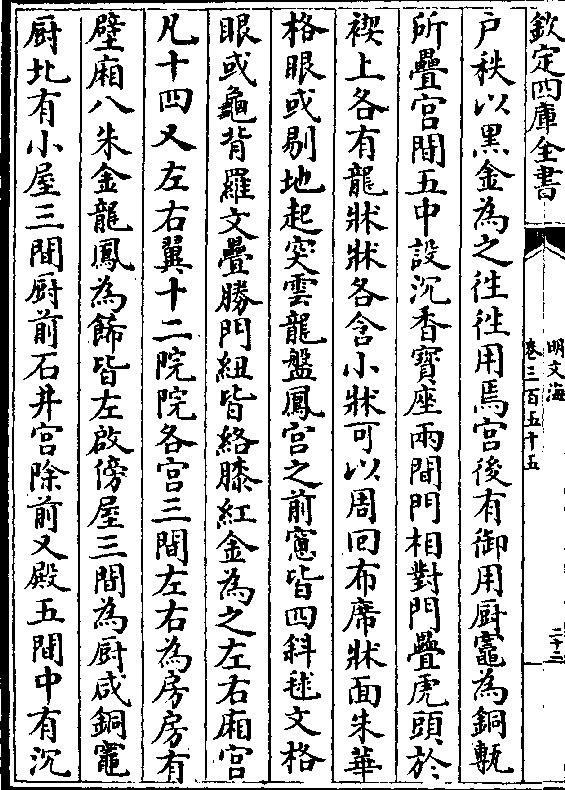 欽定四庫全書
明文海
卷三百五十五
二十二
户秩以黑金為之徃徃用焉宫後有御用厨竈為銅甎
所疊宫間五中設沉香寳座兩間門相對門疊虎頭於
禊上各有龍牀牀各含小牀可以周回布席牀面朱華
格眼或剔地起突雲龍盤鳳宫之前窻皆四斜毬文格
眼或龜背羅文疊勝門紐皆絡膝紅金為之左右廂宫
凡十四又左右翼十二院院各宫三間左右為房房有
壁廂八朱金龍鳳為飾皆左啟傍屋三間為厨咸銅竈
厨北有小屋三間厨前石井宫除前又殿五間中有沉